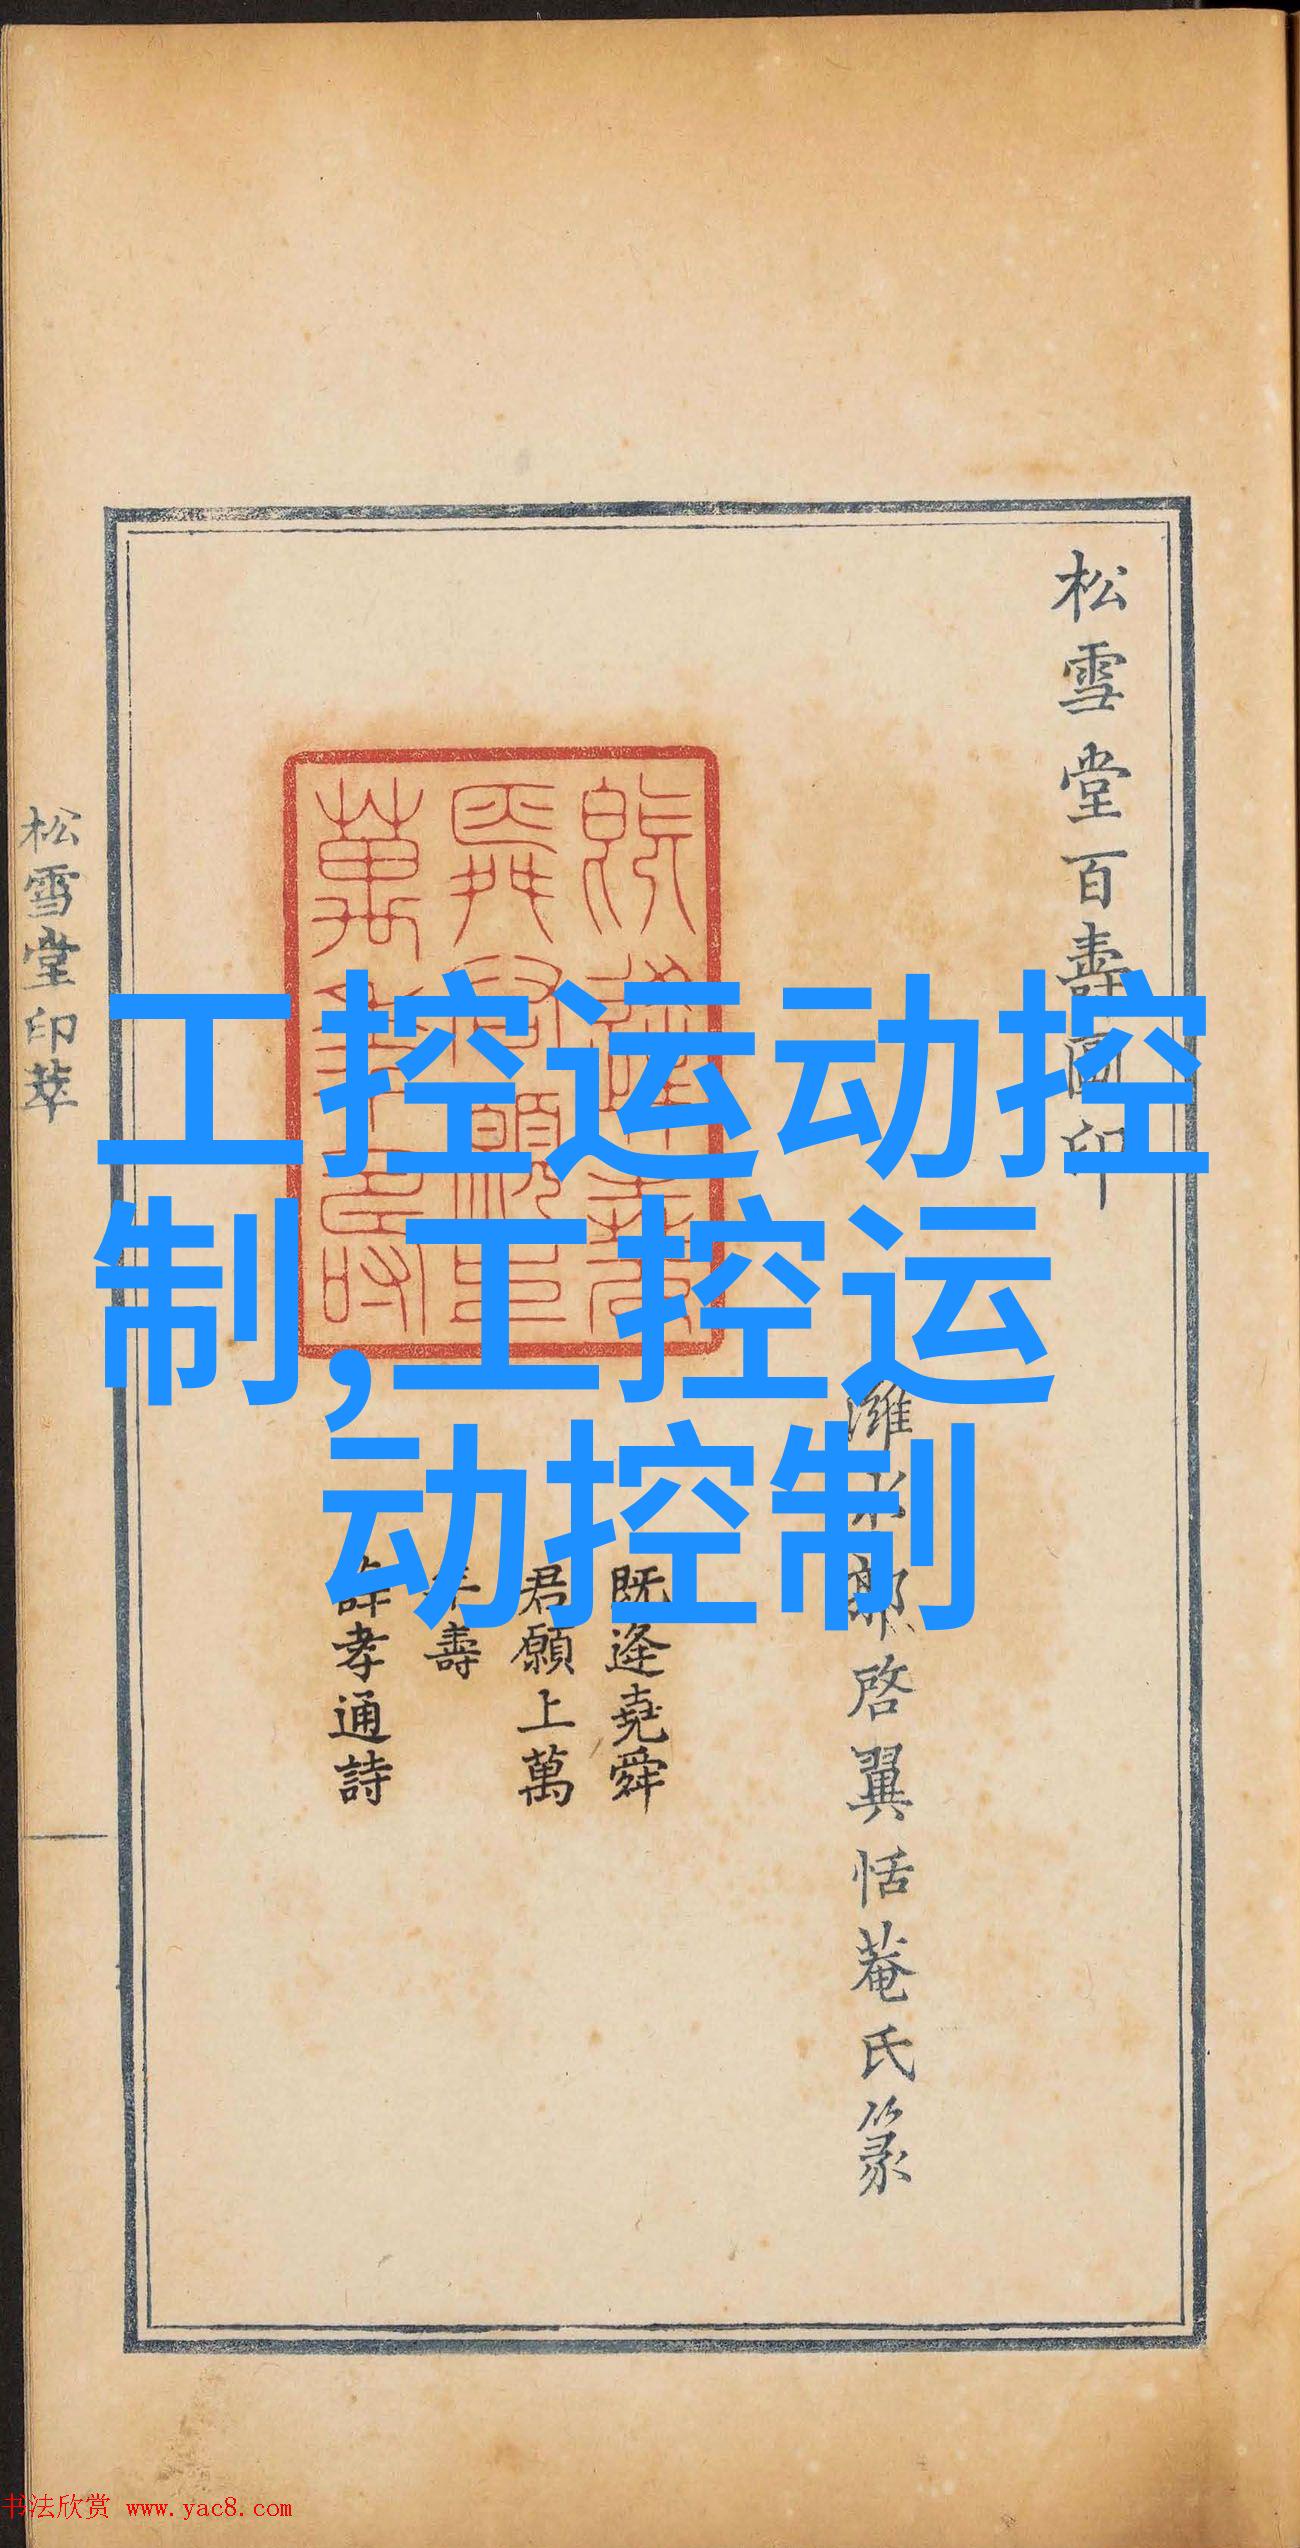 工控运动控
制,工控运
动控制
松雪堂百壽圖印
濰水郭啓翼恬菴氏篆
既逢堯舜
君願上萬
年壽
許孝通詩
松雪堂印萃
书法欣赏 www.yac8.com